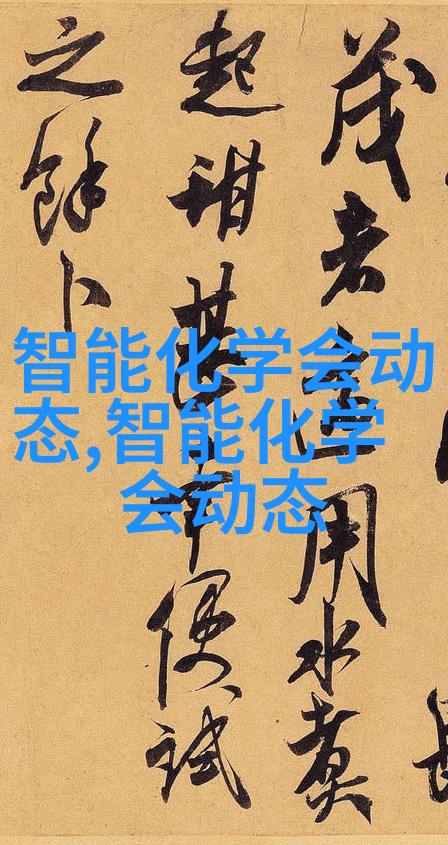 智能化学会动
态,智能化学
会动态
茂者用水煮
起甜甚便試
之餘卜